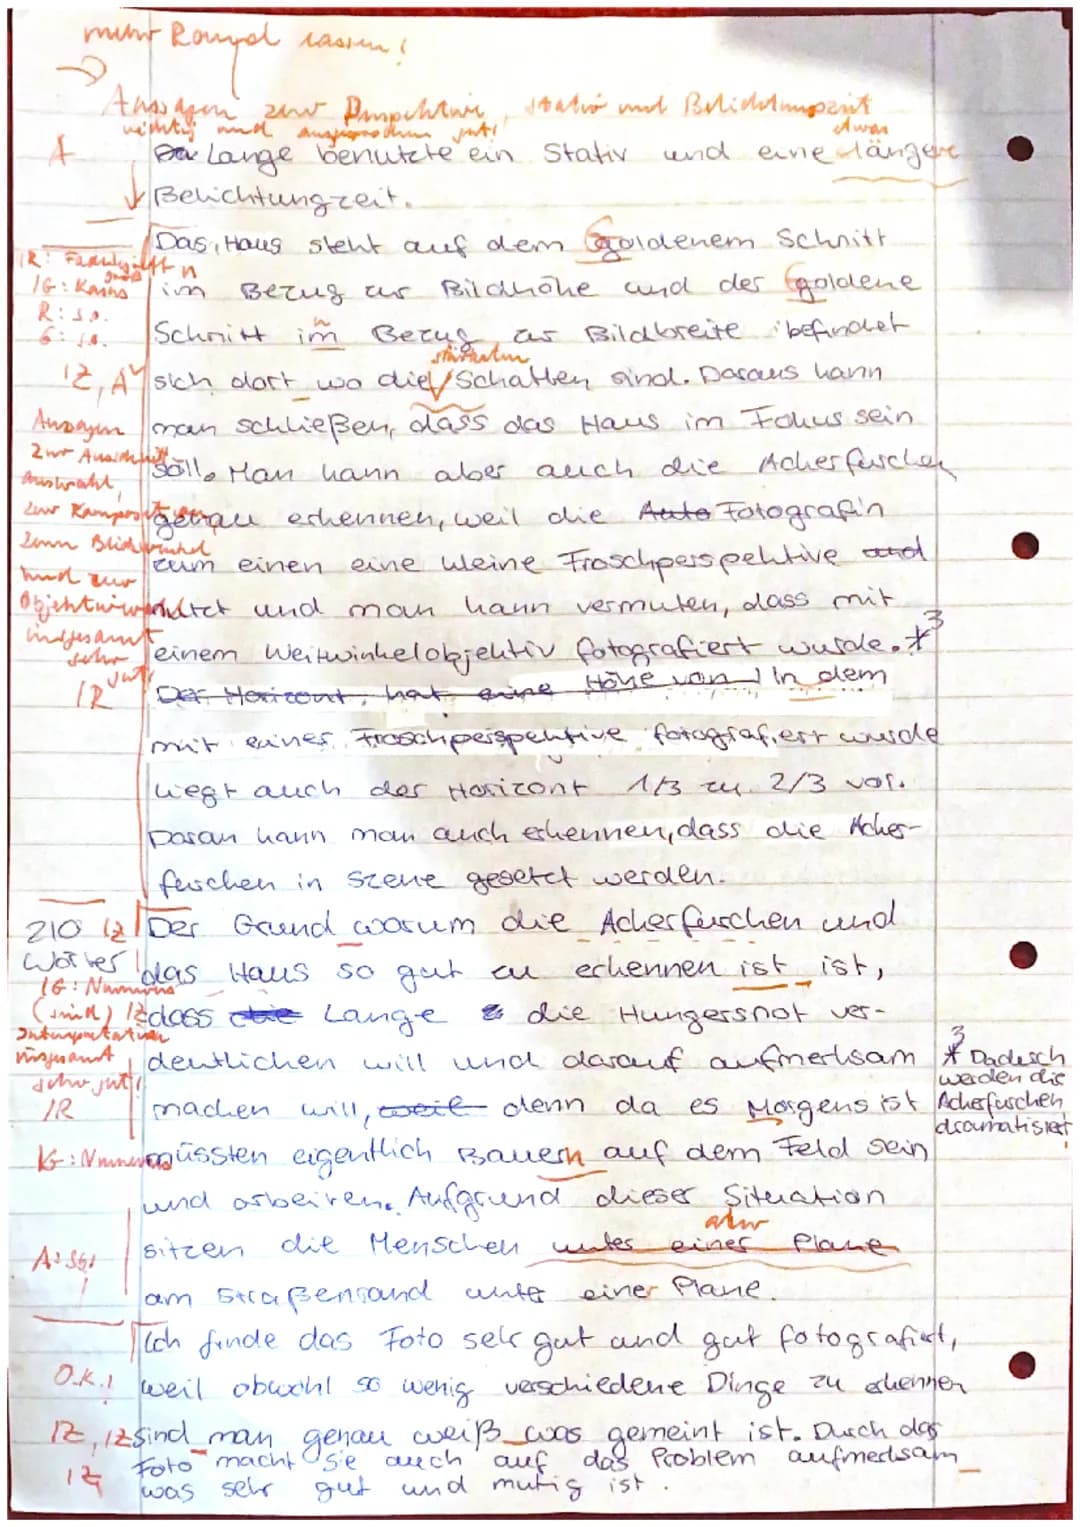 mehr Rand lassen!
Aussagen zur Perspektive, Stativ und Belichtungszeit
richtig und ausgesprochen gut!
etwas
A Lange benutzte ein Stativ und eine längere
Belichtungzeit.
Das Haus steht auf dem goldenem Schnitt
im Bezug zur Bildhöhe und der goldene
n
R: s.o.
Schnitt im Bezug zur Bildbreite befindet
n
stärksten
IZ, A sich dort wo die Schatten sind. Daraus kann
man schließen, dass das Haus im Fokus sein
Aussagen
zur Ausschnitt
soll. Man kann aber auch die Ackerfurchen
auswahl,
zur Komposition,
genau erkennen, weil die Auto Fotografin
zum Blickwinkel
zum einen eine kleine Froschperspektive und
und zur
Objektivwahl
und man kann vermuten, dass mit
insgesamt
sehr gut!
einem Weitwinkelobjektiv fotografiert wurde. *3
/R Der Horizont, hat eine Höhe von In dem
mit einer Froschperspektive fotografiert wurde
liegt auch der Horizont 1/3 zu 2/3 vor.
Daran kann man auch erkennen, dass die Acker-
furchen in szene gesetzt werden.
210 Wörter
IZ Der Grund warum die Ackerfurchen und
das Haus so gut zu erkennen ist ist,
IG: Numerus
(sind) IZ
dass die Lange die Hungersnot ver-
Interpretation
insgesamt
sehr gut!
deutlichen will und darauf aufmerksam
/R machen will, weil denn da es Morgens ist
*3 Dadurch
werden die
Ackerfurchen
dramatisiert
IG: Numerus müssten eigentlich Bauern auf dem Feld sein
und arbeiten. Aufgrund dieser Situation
aber
sitzen die Menschen unter einer Plane
am Straßenrand unter einer Plane.
Ich finde das Foto sehr gut und gut fotografiert,
O.K.! weil obwohl so wenig verschiedene Dinge zu erkennen
IZ, IZ sind man genau weiß was gemeint ist. Durch das
Foto macht sie auch auf das Problem aufmerksam
IZ was sehr gut und mutig ist.